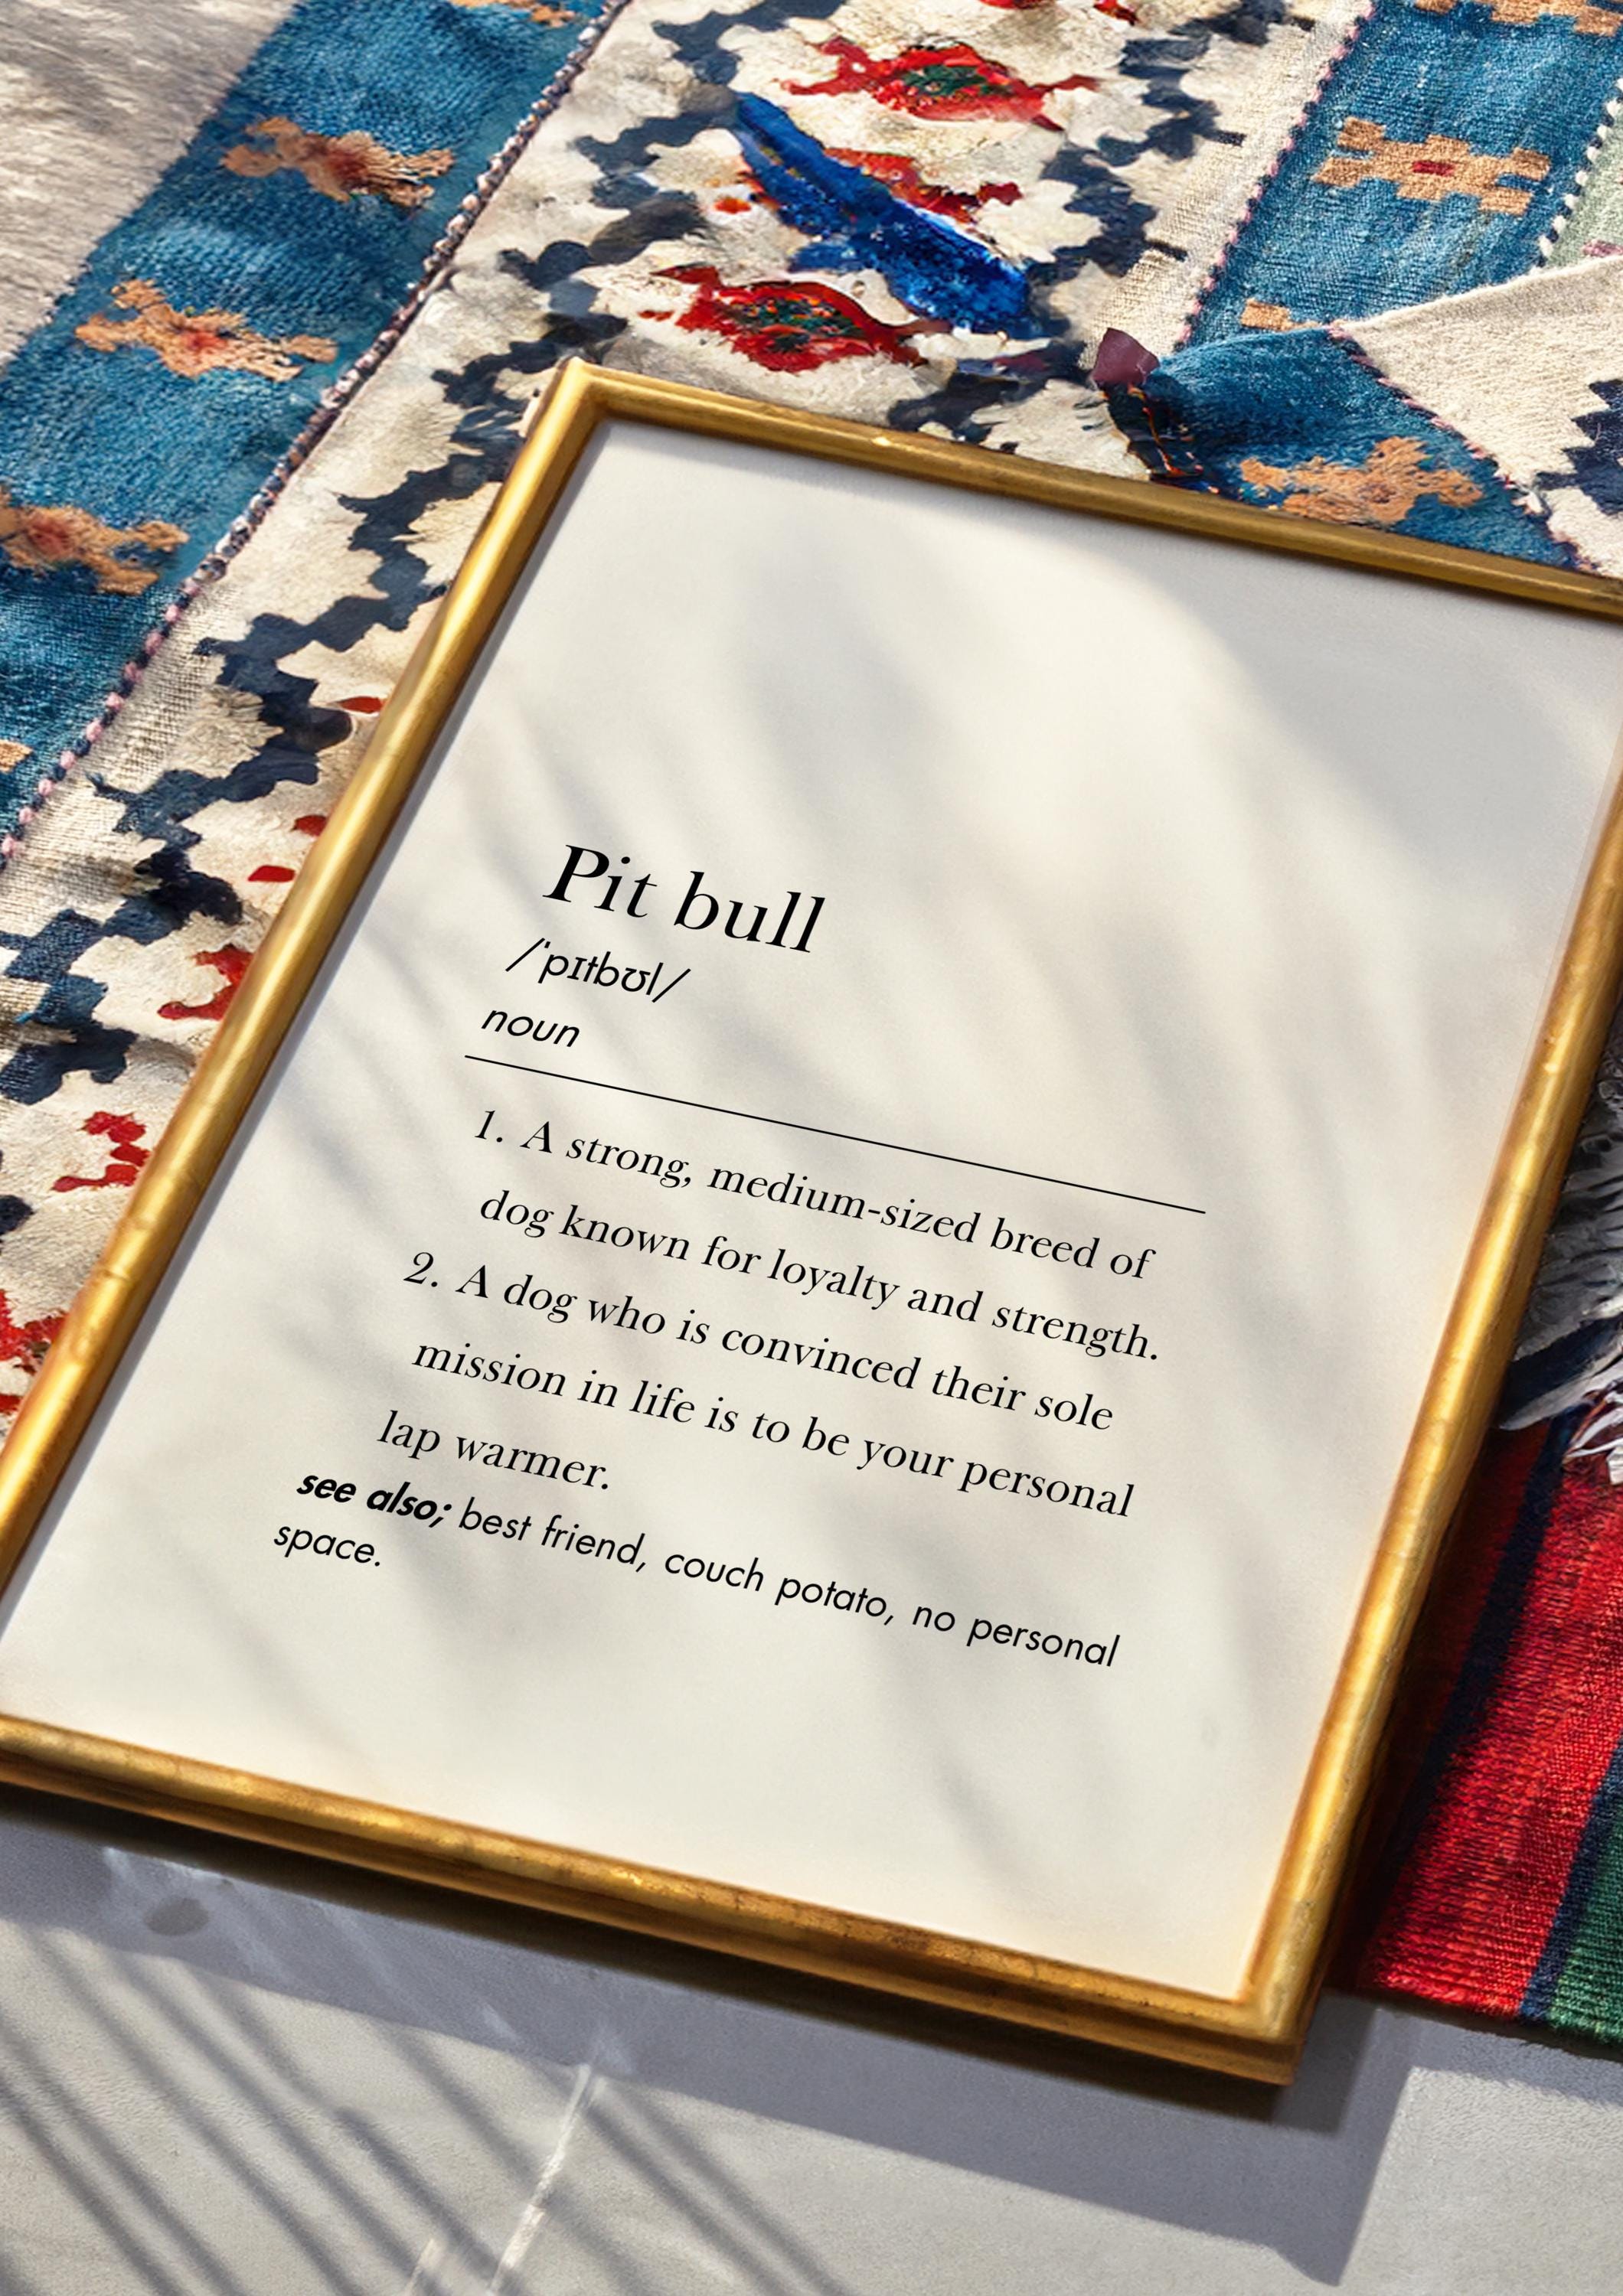 Pit bull
/ˈpɪtbʊl/
noun
1. A strong, medium-sized breed of
dog known for loyalty and strength.
2. A dog who is convinced their sole
mission in life is to be your personal
lap warmer.
see also; best friend, couch potato, no personal
space.